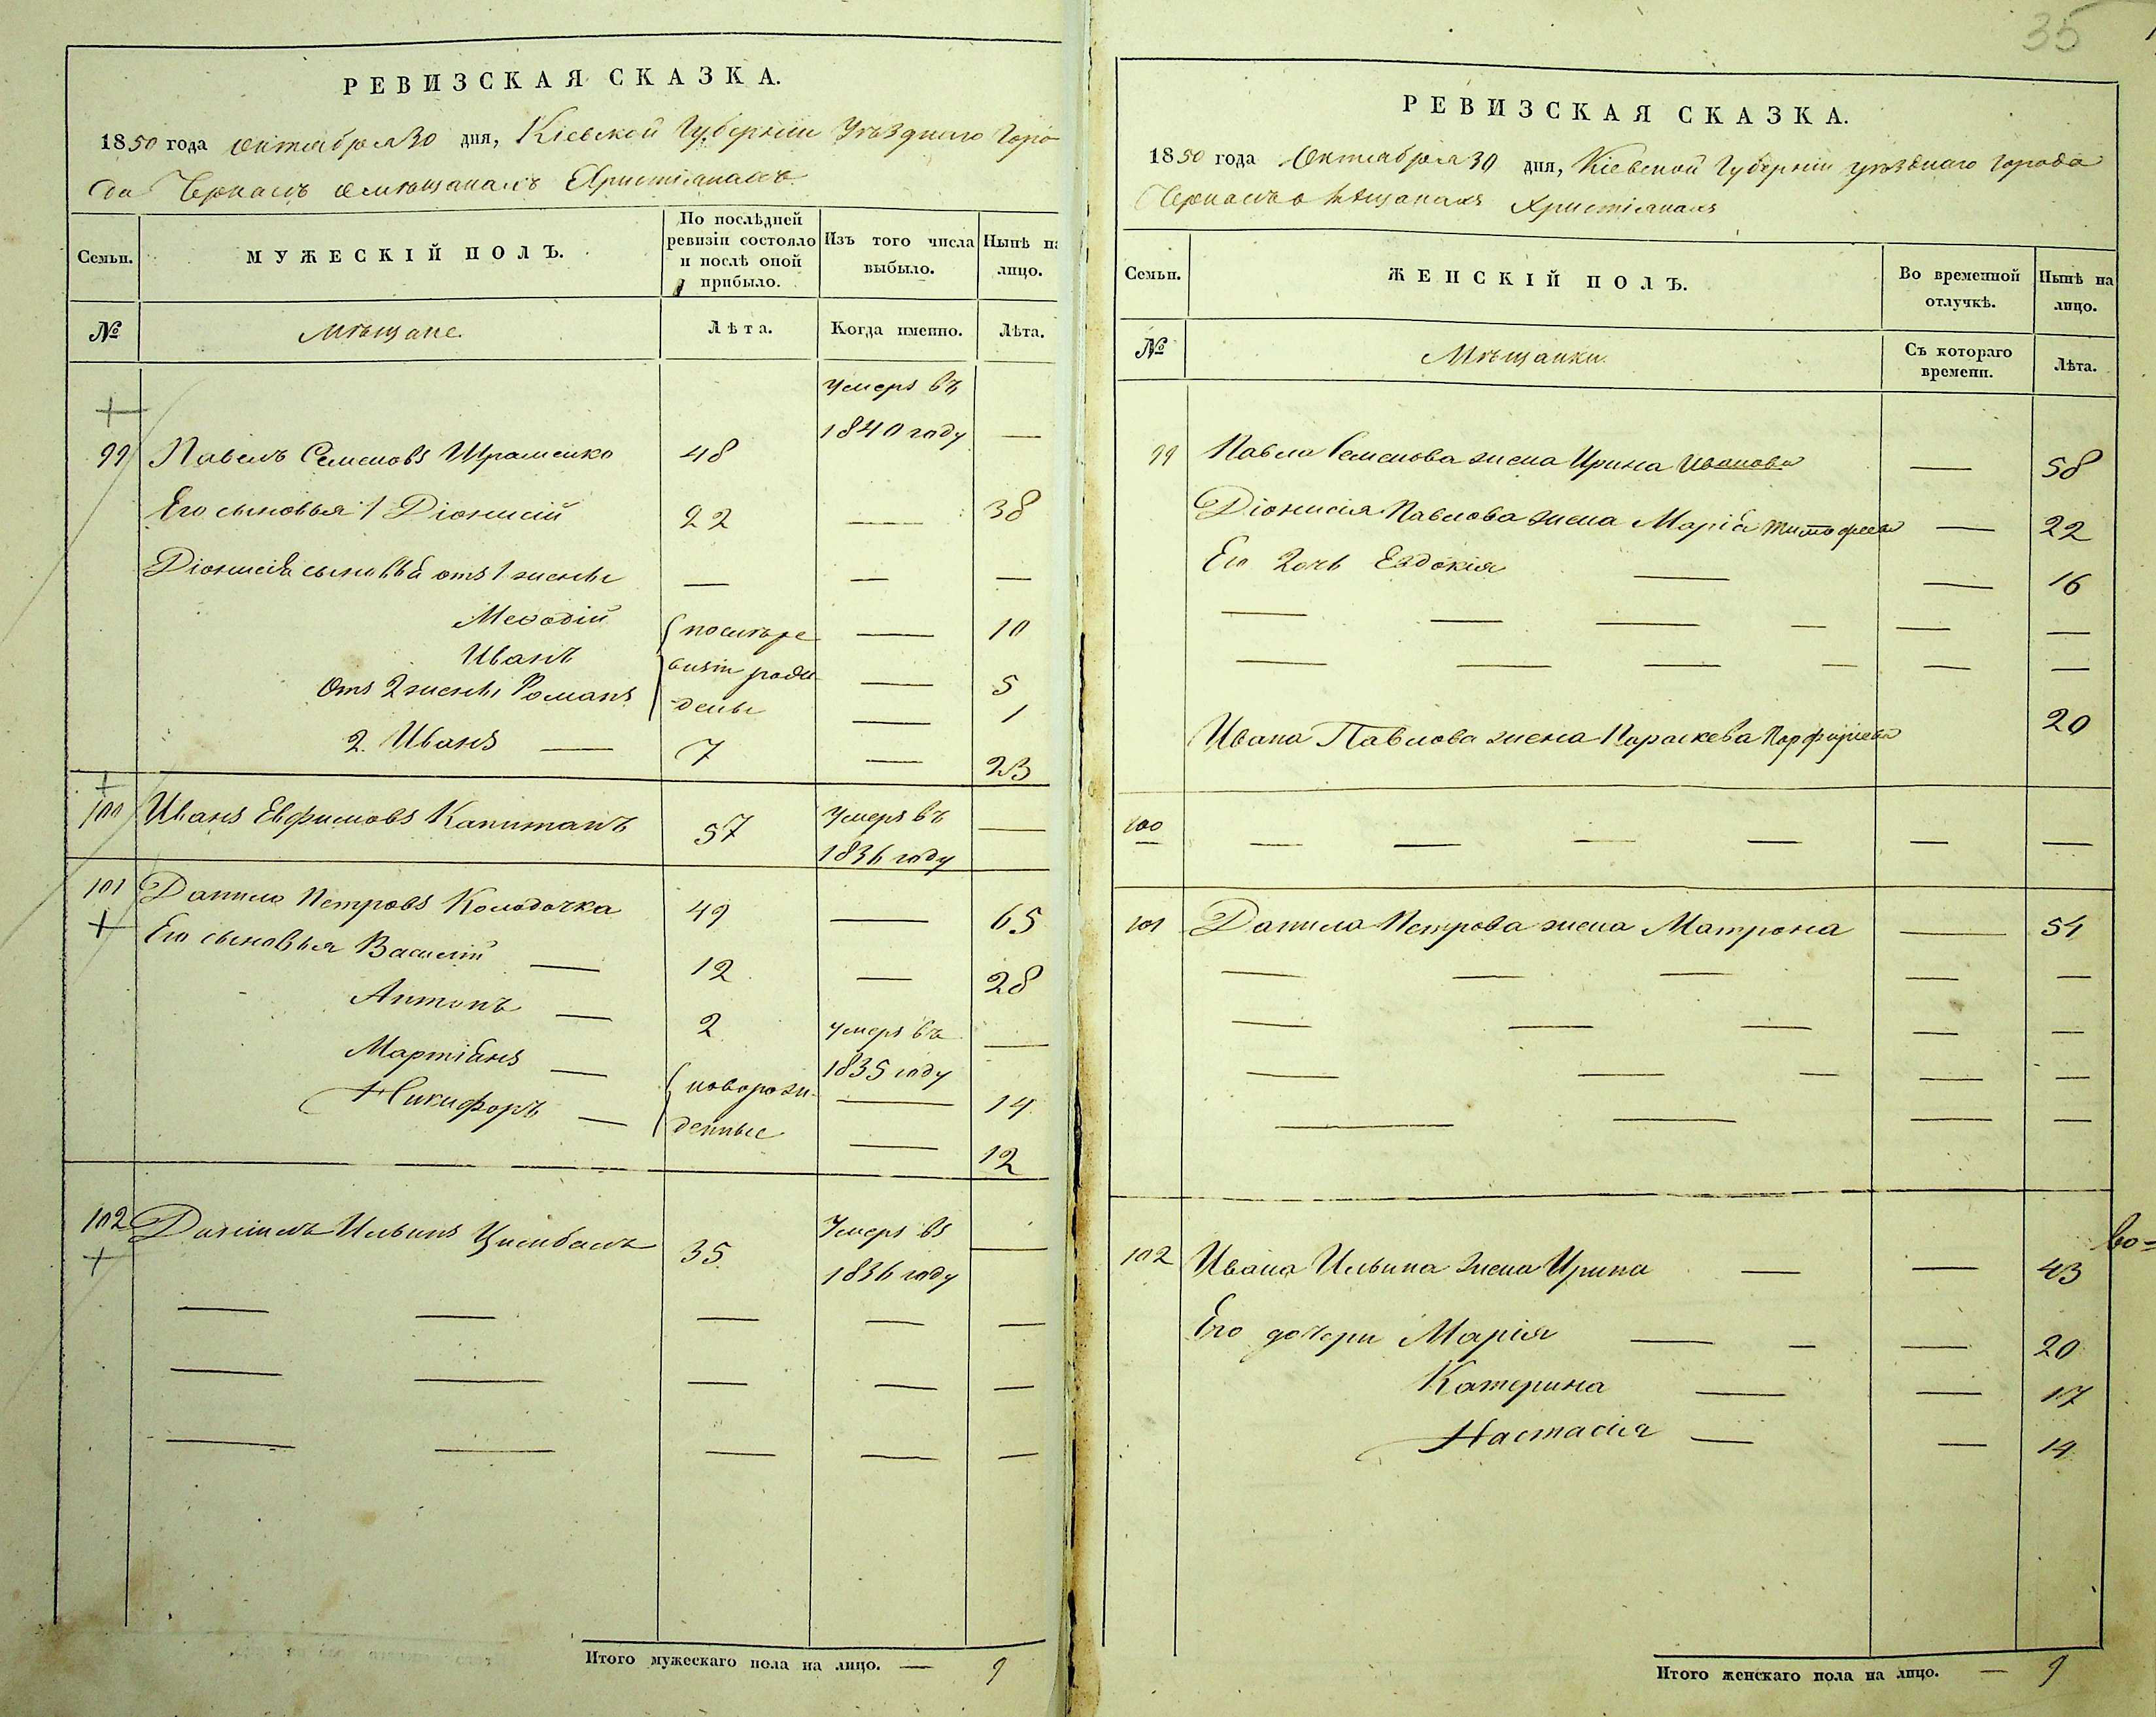 РЕВИЗСКАЯ СКАЗКА.
1850 года октября 30 дня, Кіевской Губерніи Уѣзднаго Горо
да Черкасъ о мѣщанахъ Христіанахъ.
Семьи.
МУЖЕСКІЙ ПОЛЪ.
По послѣдней
ревизіи состояло
и послѣ оной
прибыло.
Изъ того числа
выбыло.
Нынѣ на
лицо.
№
Мѣщане.
Лѣта.
Когда именно.
Лѣта.
умеръ въ
1840 году —
99 Павелъ Семеновъ Шраменко 48
Его сыновья 1 Діонисій 22 — 38
Діонисія сыновья отъ 1 жены — — —
Меѳодій { послѣ ре — 10
Иванъ визіи рож — 5
Отъ 2 жены Романъ дены — 1
2. Иванъ — 7 — 23
100 Иванъ Евфимовъ Капитанъ 57 умеръ въ —
1836 году
101 Данило Петровъ Колодочка 49 — 65
Его сыновья Василій — 12 — 28
Антонъ — 2 умеръ въ —
1835 году
Мартіянъ — { новорож- — 14
Никифоръ — денные — 12
102 Даніилъ Ильинъ Цимбалъ 35 Умеръ въ —
1836 году
Итого мужескаго пола на лицо. — 9
35
РЕВИЗСКАЯ СКАЗКА.
1850 года Октября 30 дня, Кіевской Губерніи уѣзднаго города
Черкасъ о мѣщанахъ Христіанахъ
Семьи.
ЖЕНСКІЙ ПОЛЪ.
Во временной
отлучкѣ.
Нынѣ на
лицо.
№
Мѣщанки.
Съ котораго
времени.
Лѣта.
99 Павла Семенова жена Ирина Иванова — 58
Діонисія Павлова жена Марія Тимофеева — 22
Его дочь Евдокія — — 16
Ивана Павлова жена Параскева Порфирева 20
100 — — — — — —
101 Данила Петрова жена Матрона — 54
102 Ивана Ильина жена Ирина — — 43
во=
Его дочери Марія — — — 20
Катерина — — 17
Настасія — — 14
Итого женскаго пола на лицо. — 9